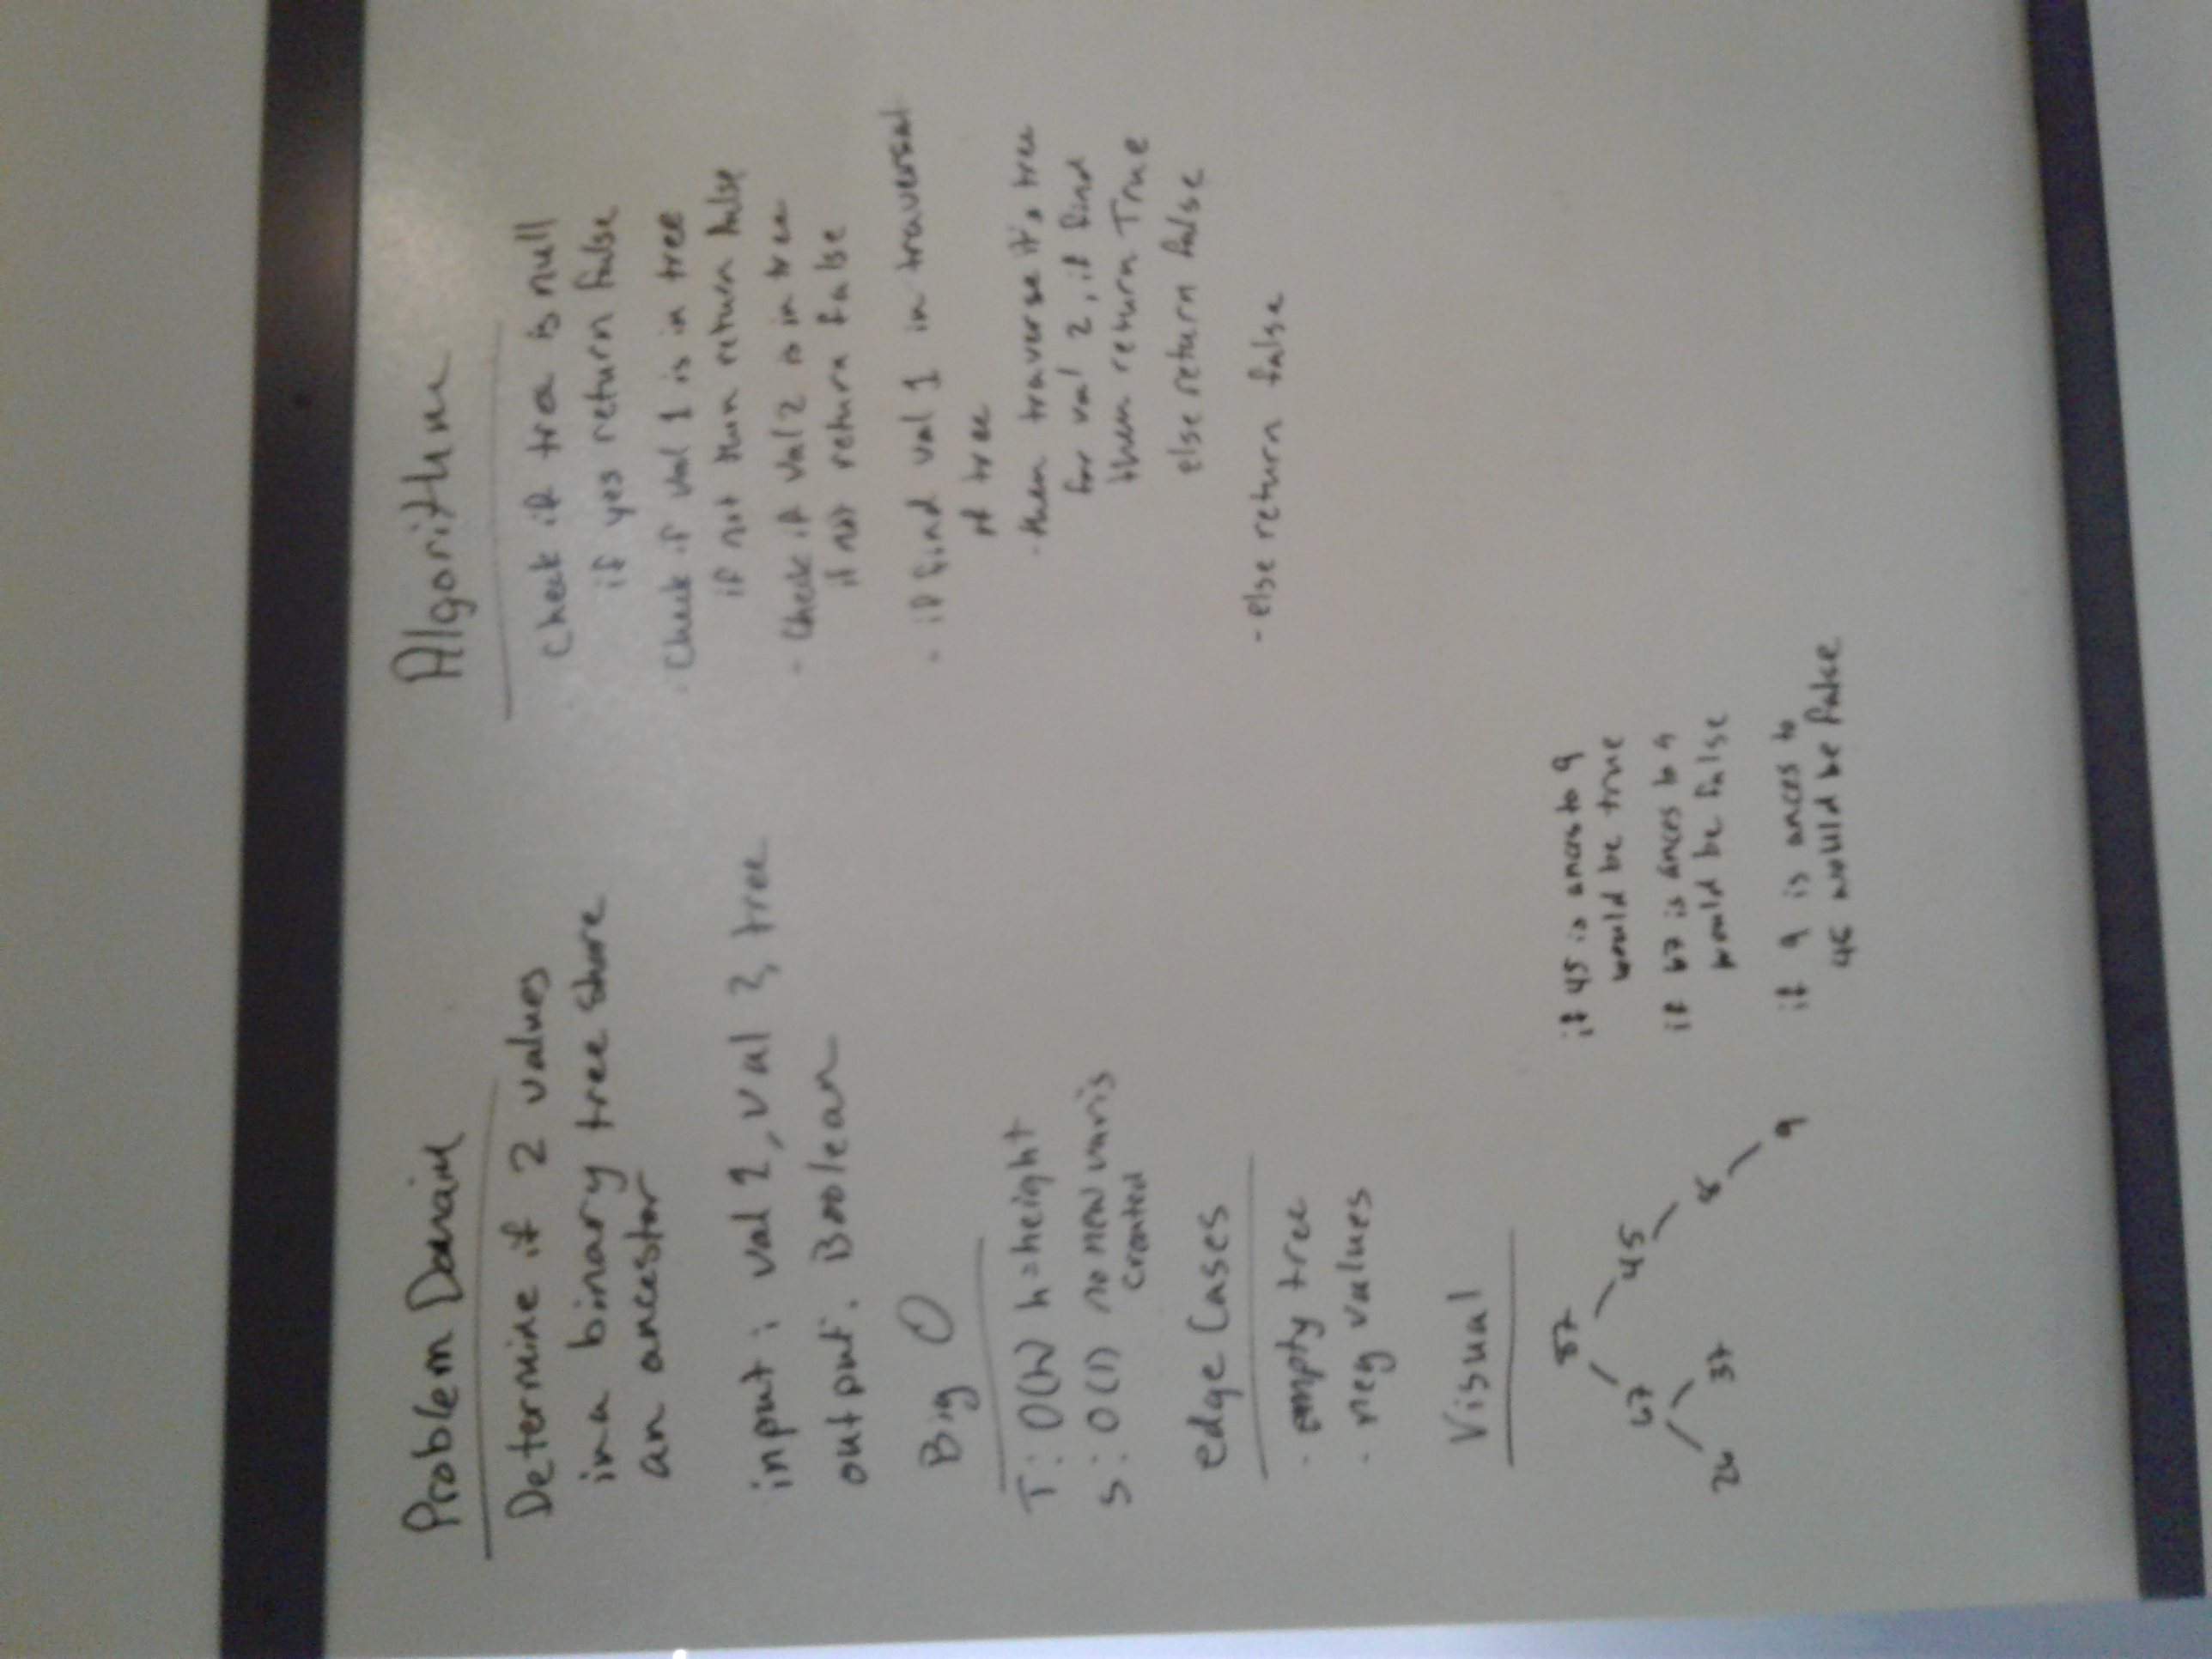 Problem Domain
Determine if 2 values
in a binary tree share
an ancestor
input: val 1, val 2, tree
output: Boolean
Big O
T: O(h) h=height
S: O(1) no new varis
created
edge Cases
- empty tree
- neg values
Visual
87
67 45
26 37 8
9
if 45 is ances to 9
would be true
if 67 is ances to 9
would be false
if 9 is ances to
45 would be false
Algorithm
Check if tree is null
if yes return false
- Check if val 1 is in tree
if not then return false
- Check if val 2 is in tree
if not return false
- if find val 1 in traversal
of tree
- then traverse it's tree
for val 2, if find
then return True
else return false
- else return false